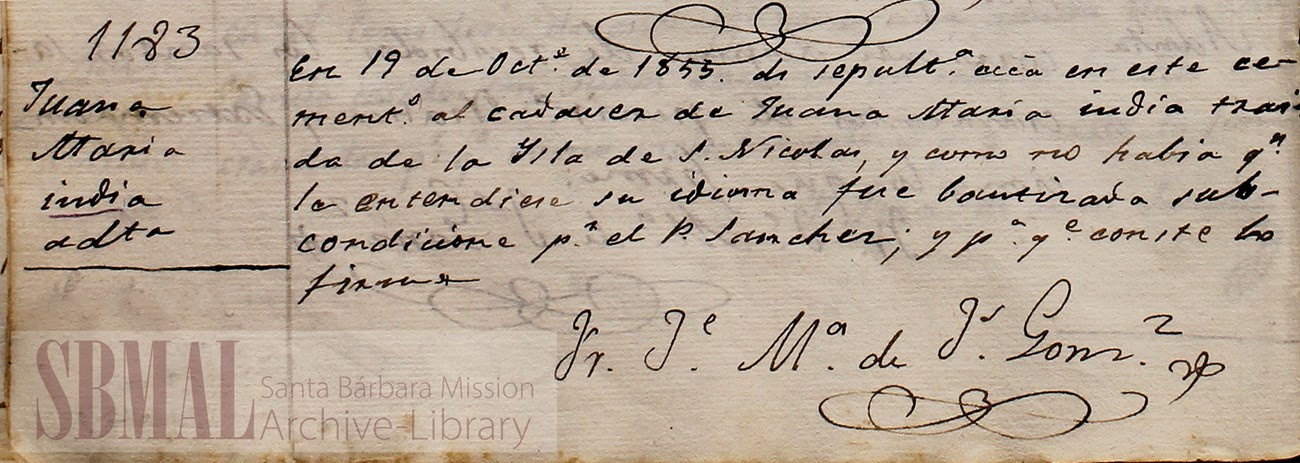 1183
Juana
Maria
india
adta
En 19 de Oct.e de 1853. di sepult.a ecca en este ce-
ment.o al cadaver de Juana Maria india trai-
da de la Ysla de S. Nicolas, y como no habia q.n
le entendiese su idioma fue bautizada sub-
condicione p.r el P. Sanchez; y p.a q.e conste lo
firma
Fr. J.e M.a de J.s Gonz.z
SBMAL
Santa Bárbara Mission
Archive-Library